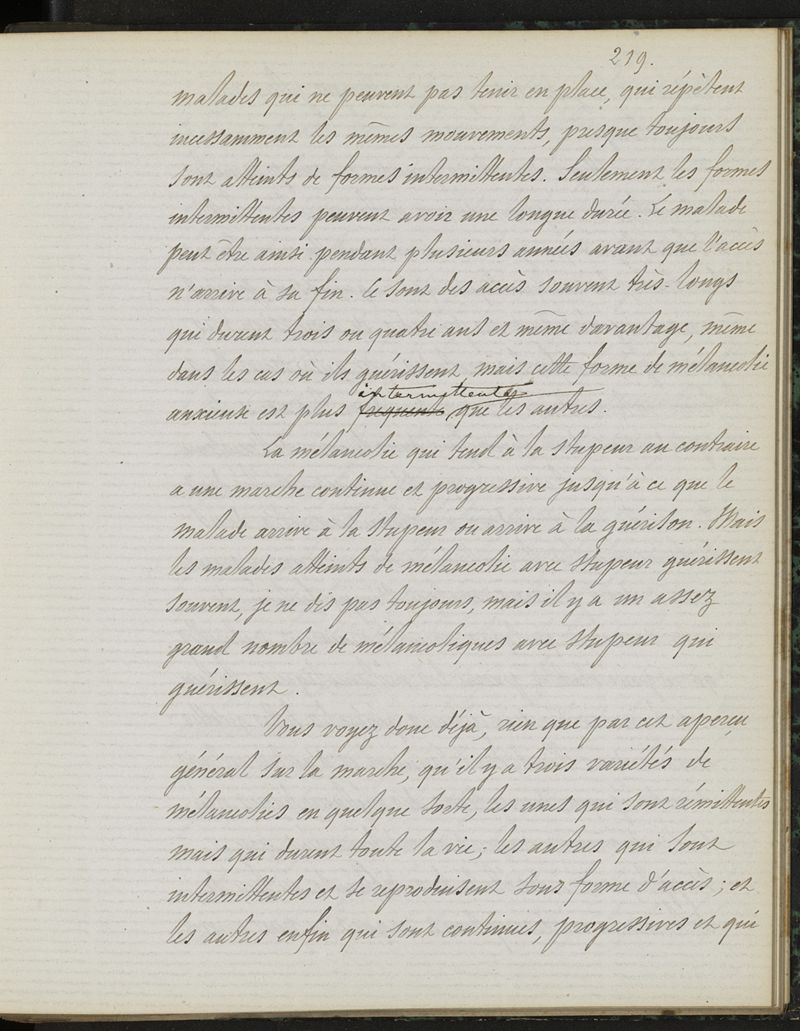 219.
malades qui ne peuvent pas tenir en place, qui répètent
incessamment les mêmes mouvements, presque toujours
sont atteints de formes intermittentes. Seulement les formes
intermittentes peuvent avoir une longue durée. Le malade
peut être ainsi pendant plusieurs années avant que l'accès
n'arrive à sa fin. Ce sont des accès souvent très-longs
qui durent trois ou quatre ans et même davantage, même
dans les cas où ils guérissent, mais cette forme de mélancolie
intermittente
anxieuse est plus fréquente, que les autres.
La mélancolie qui tend à la stupeur au contraire
a une marche continue et progressive jusqu'à ce que le
malade arrive à la stupeur ou arrive à la guérison. Mais
les malades atteints de mélancolie avec stupeur guérissent
souvent, je ne dis pas toujours, mais il y a un assez
grand nombre de mélancoliques avec stupeur qui
guérissent.
Vous voyez donc déjà, rien que par cet aperçu
général sur la marche, qu'il y a trois variétés de
mélancolies en quelque sorte, les unes qui sont rémittentes
mais qui durent toute la vie; les autres qui sont
intermittentes et se reproduisent sous forme d'accès; et
les autres enfin qui sont continues, progressives et qui